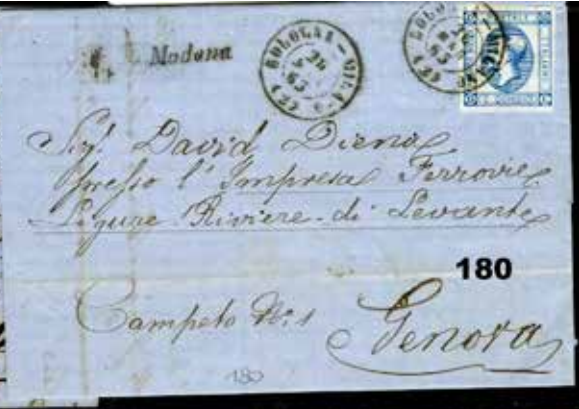 Modena
BOLOGNA - MILANO
(2)
BOLOGNA - MILANO
(2)
Sig. David Diena
presso l'Impresa Ferrovie
Ligure Riviere di Levante
180
Campeto No. 1
Genova
180